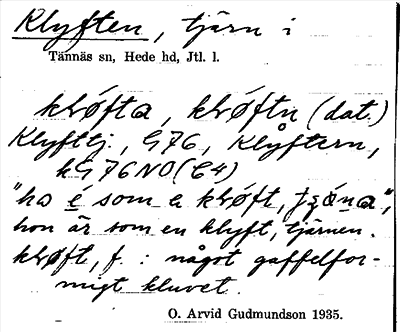 Klyften, tjärn i
Tännäs sn, Hede hd, Jtl. l.
kɫøfta, kɫøftn (dat.)
Klyfttj., G76, Klåftern,
kG76NO(C4)
"ha é som a kɫøft,
hon är som en klyft, tjärnen.
kɫøft, f. : något gaffelfor-
migt kluvet.
O. Arvid Gudmundson 1935.